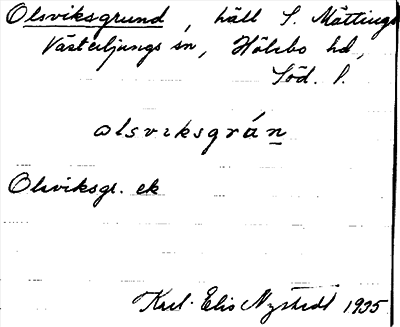 Olsviksgrund, häll S. Mättinge
Västerljungs sn, Hölebo hd,
Söd. l.
ɑlsviksgrán
Olsviksgr. ek
Karl-Elis Nystedt 1935